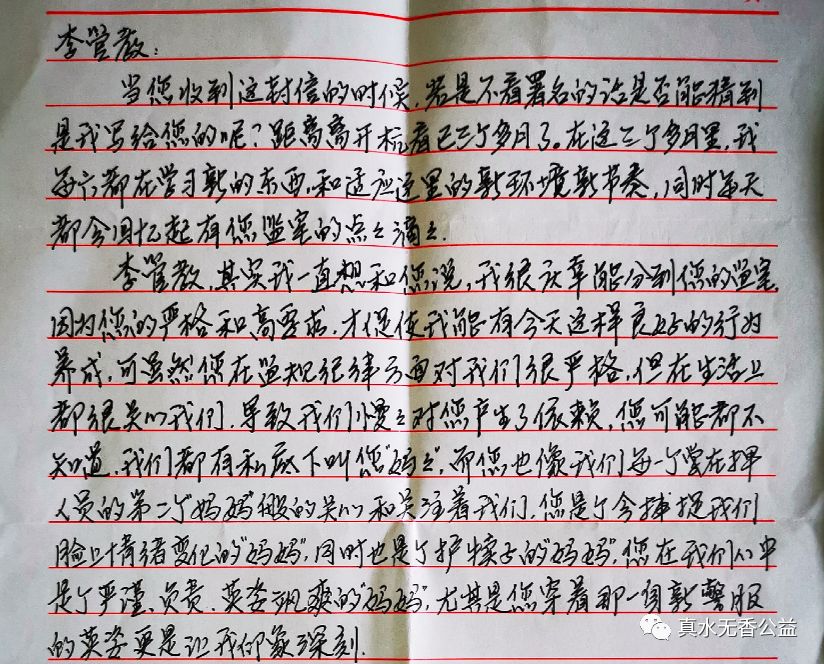 李管教：
当您收到这封信的时候，若是不看署名的话是否能猜到
是我写给您的呢？距离离开杭看已三个多月了。在这三个多月里，我
每天都在学习新的东西，和适应这里的新环境新节奏，同时每天
都会回忆起有您监室的点々滴々.
李管教，其实我一直想和您说，我很庆幸能分到您的监室，
因为您的严格和高要求，才促使我能有今天这样良好的行为
养成，可虽然您在监规纪律方面对我们很严格，但在生活上
都很关心我们，导致我们慢々对您产生了依赖，您可能都不
知道，我们都有私底下叫您“妈々”，而您也像我们每一个在押
人员的第二个“妈妈”般的关心和关注着我们，您是个会捕捉我们
脸上情绪变化的“妈妈”，同时也是个护犊子的“妈妈”，您在我们心中
是个严谨、负责、英姿飒爽的“妈妈”，尤其是您穿着那一身新警服
的英姿更是让我印象深刻.
真水无香公益